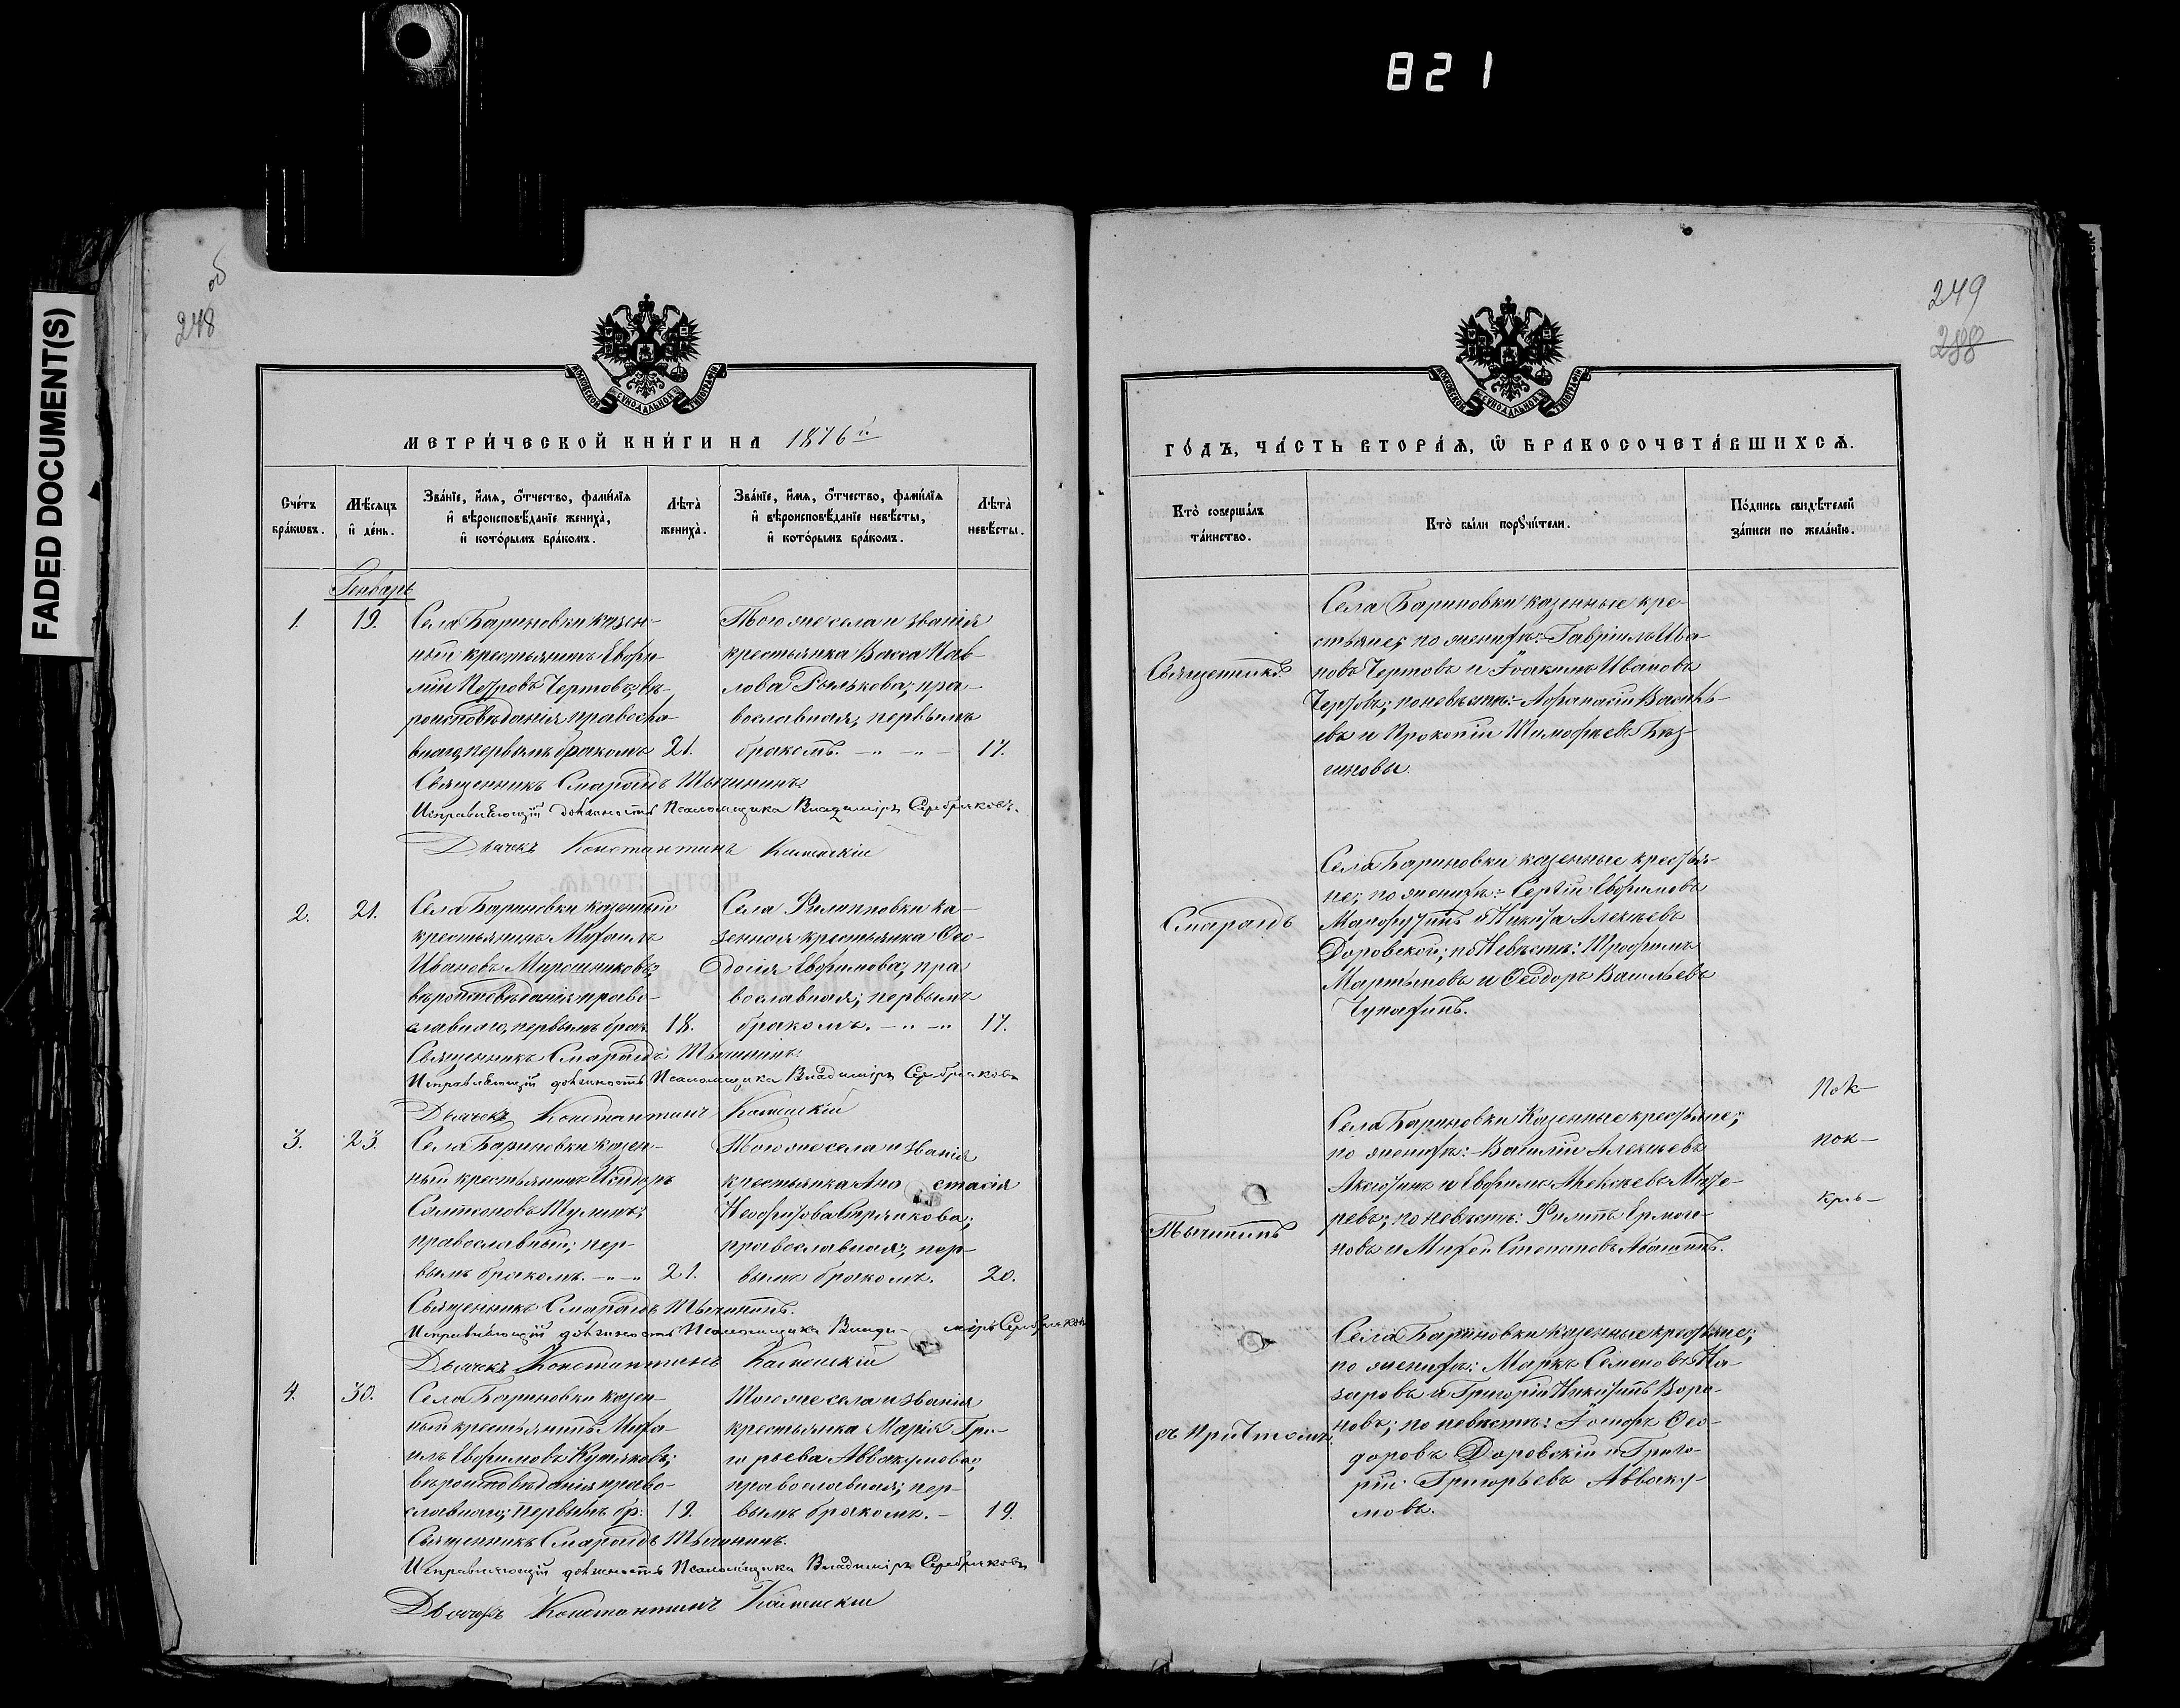 821
FADED DOCUMENT(S)
об
248
МЕТРИ́ЧЕСКОЙ КНИ́ГИ НА 1876й
Счéтъ бра́кѡвъ.
Мѣ́сяцъ и҆ дéнь.
Зва́нїе, и҆́мѧ, ѻ҆́тчество, фами́лїѧ и҆ вѣроисповѣ́данїе жениха̀, и҆ кото́рымъ бра́комъ.
Лѣта̀ жениха̀.
Зва́нїе, и҆́мѧ, ѻ҆́тчество, фами́лїѧ и҆ вѣроисповѣ́данїе невѣ́сты, и҆ кото́рымъ бра́комъ.
Лѣта̀ невѣ́сты.
Генварь
1. 19.
Села Бариновки казен-
ный крестьянинъ Евфи-
мій Петровъ Чертовъ; вѣ-
роисповѣданія правосла-
внаго, первымъ бракомъ 21.
Тогоже села и званія
крестьянка Васса Пав-
лова Рылькева; пра-
вославная; первымъ
бракомъ. 17.
Священникъ Смарагдъ Тычининъ
Исправляющій должность Псаломщика Владиміръ Серебряковъ.
Дьячекъ Константинъ
2. 21.
Села Бариновки казенный
крестьянинъ Михаилъ
Ивановъ Мирошниковъ;
вѣроисповѣданія право-
славнаго, первымъ брак. 18.
Села Филипповки ка-
зенная крестьянка Ѳео-
досія Евфимова; пра
вославная; первымъ
бракомъ. 17.
Священникъ Смарагдъ Тычининъ.
Исправляющій должность Псаломщика Владиміръ Серебряковъ
Дьячекъ Константинъ
3. 23.
Села Бариновки казен-
ный крестьянинъ Исидоръ
православный; пер-
вымъ бракомъ. 21.
Тогоже села и званія
крестьянка Анастасія
православная; пер-
вымъ бракомъ. 20.
Священникъ Смарагдъ Тычининъ.
Исправляющій должность Псаломщика Владиміръ Серебряковъ
Дьячекъ Константинъ
4. 30.
Села Бариновки казен-
ный крестьянинъ Миха-
илъ Евфимовъ
вѣроисповѣданія право-
славнаго; первымъ бр: 19.
Тогоже села и званія
крестьянка Марія Гри-
горьева Аввакумова;
православная; пер-
вымъ бракомъ. 19.
Священникъ Смарагдъ Тычининъ.
Исправляющій должность Псаломщика Владиміръ Серебряковъ
Дьячекъ Константинъ
249
288
ГО́ДЪ, ЧА́СТЬ ВТОРА́Ѧ, Ѡ҆ БРАКОСОЧЕТА́ВШИХСѦ.
Кто̀ соверша́лъ та́инство.
Кто̀ бы́ли порꙋчи́тели.
По́дпись свидѣ́телей за́писи по жела́нїю.
Священникъ
Смарагдъ
Тычининъ
съ причтомъ.
Села Бариновки казенные кре-
стьяне; по женихѣ: Гавріилъ Ива-
новъ Чертовъ и Іоакимъ Ивановъ
Чертовъ; по невѣстѣ: Афанасій Василь-
евъ и Прокопій Тимофеевъ
Села Бариновки казенные крестья-
не; по женихѣ: Сергій Евфимовъ
и Никита Алексѣевъ
Доровской; по невѣстѣ: Трофимъ
Мартыновъ и Ѳеодоръ Васильевъ
Села Бариновки казенные крестьяне;
по женихѣ: Василій Алексѣевъ
и Евфимъ Алексѣевъ
по невѣстѣ: Филиппъ Ермола-
Степановъ
Села Бариновки казенные крестьяне;
по женихѣ: Маркъ Семеновъ На-
заровъ и Григорій Никитинъ Воро-
новъ; по невѣстѣ: Іосифъ Ѳео-
доровъ Доровскій и Григо-
рій Григорьевъ Авваку-
мовъ.